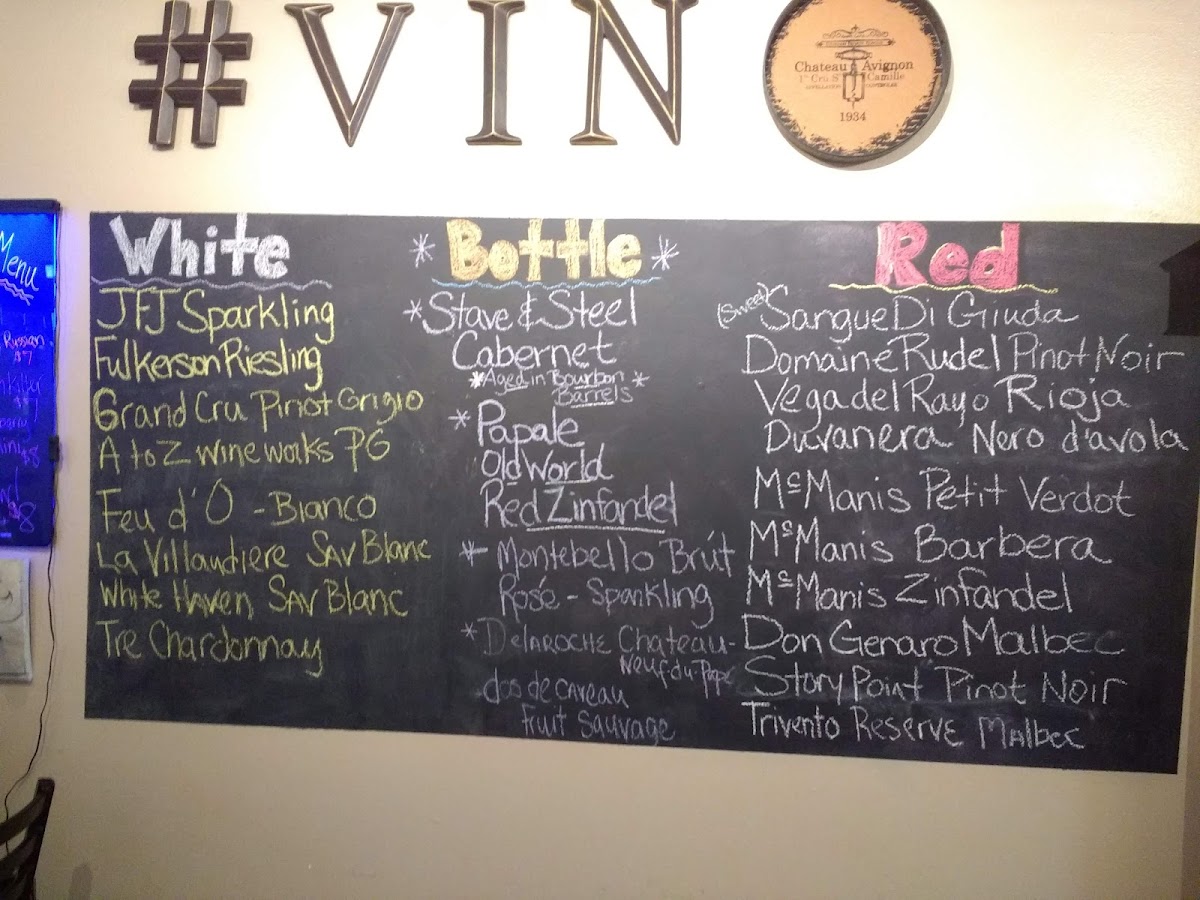 #VIN
Chateau Avignon
1er Cru St Camille
1934
Menu
Russian
$7
White
JFJ Sparkling
Fulkerson Riesling
Grand Cru Pinot Grigio
A to Z wineworks PG
Feu d'O - Bianco
La Villaudiere Sav Blanc
White Haven Sav Blanc
Tre Chardonnay
* Bottle *
*Stave & Steel
Cabernet
*Aged in Bourbon *
Barrels
* Papale
Old World
Red Zinfandel
* Montebello Brút
Rosé - Sparkling
*Delaroche Chateau-
Neuf-du-Pape
dos de Careau
fruit Sauvage
Red
(Sweet) Sangue Di Giuda
Domaine Rudel Pinot Noir
Vega del Rayo Rioja
Duvanera Nero d'avola
McManis Petit Verdot
McManis Barbera
McManis Zinfandel
Don Genaro Malbec
Story Point Pinot Noir
Trivento Reserve Malbec